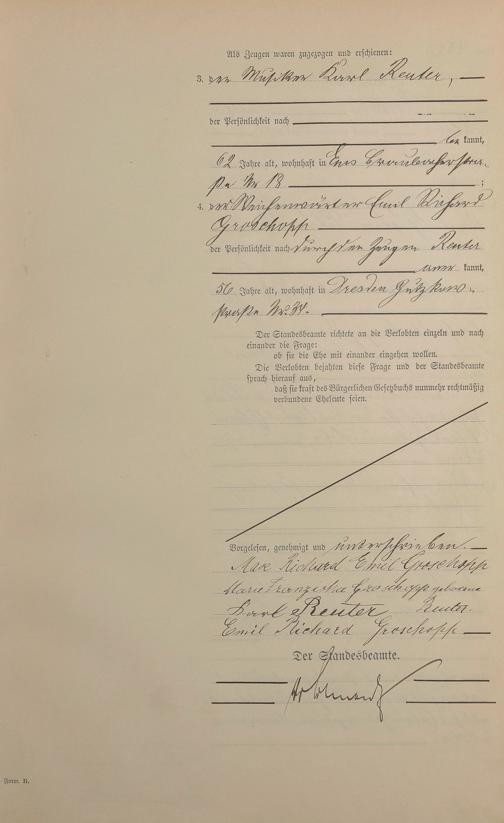 Als Zeugen waren zugezogen und erschienen:
3. der Musiker Karl Reuter, —
der Persönlichkeit nach
be kannt,
62 Jahre alt, wohnhaft in Ems Braubacherstra-
ße Nr 18 ;
4. der Weichenwärter Emil Richard
Groschopp
der Persönlichkeit nach durch den Zeugen Reuter
aner kannt,
56 Jahre alt, wohnhaft in Dresden Gutzkow-
straße Nr.
Der Standesbeamte richtete an die Verlobten einzeln und nach
einander die Frage:
ob sie die Ehe mit einander eingehen wollen.
Die Verlobten bejahten diese Frage und der Standesbeamte
sprach hierauf aus,
daß sie kraft des Bürgerlichen Gesetzbuchs nunmehr rechtmäßig
verbundene Eheleute seien.
Vorgelesen, genehmigt und unterschrieben. —
Max Richard Emil Groschopp
Marie Franziska Groschopp geborene
Reuter.
Karl Reuter
Emil Richard Groschopp —
Der Standesbeamte.
Form. B.